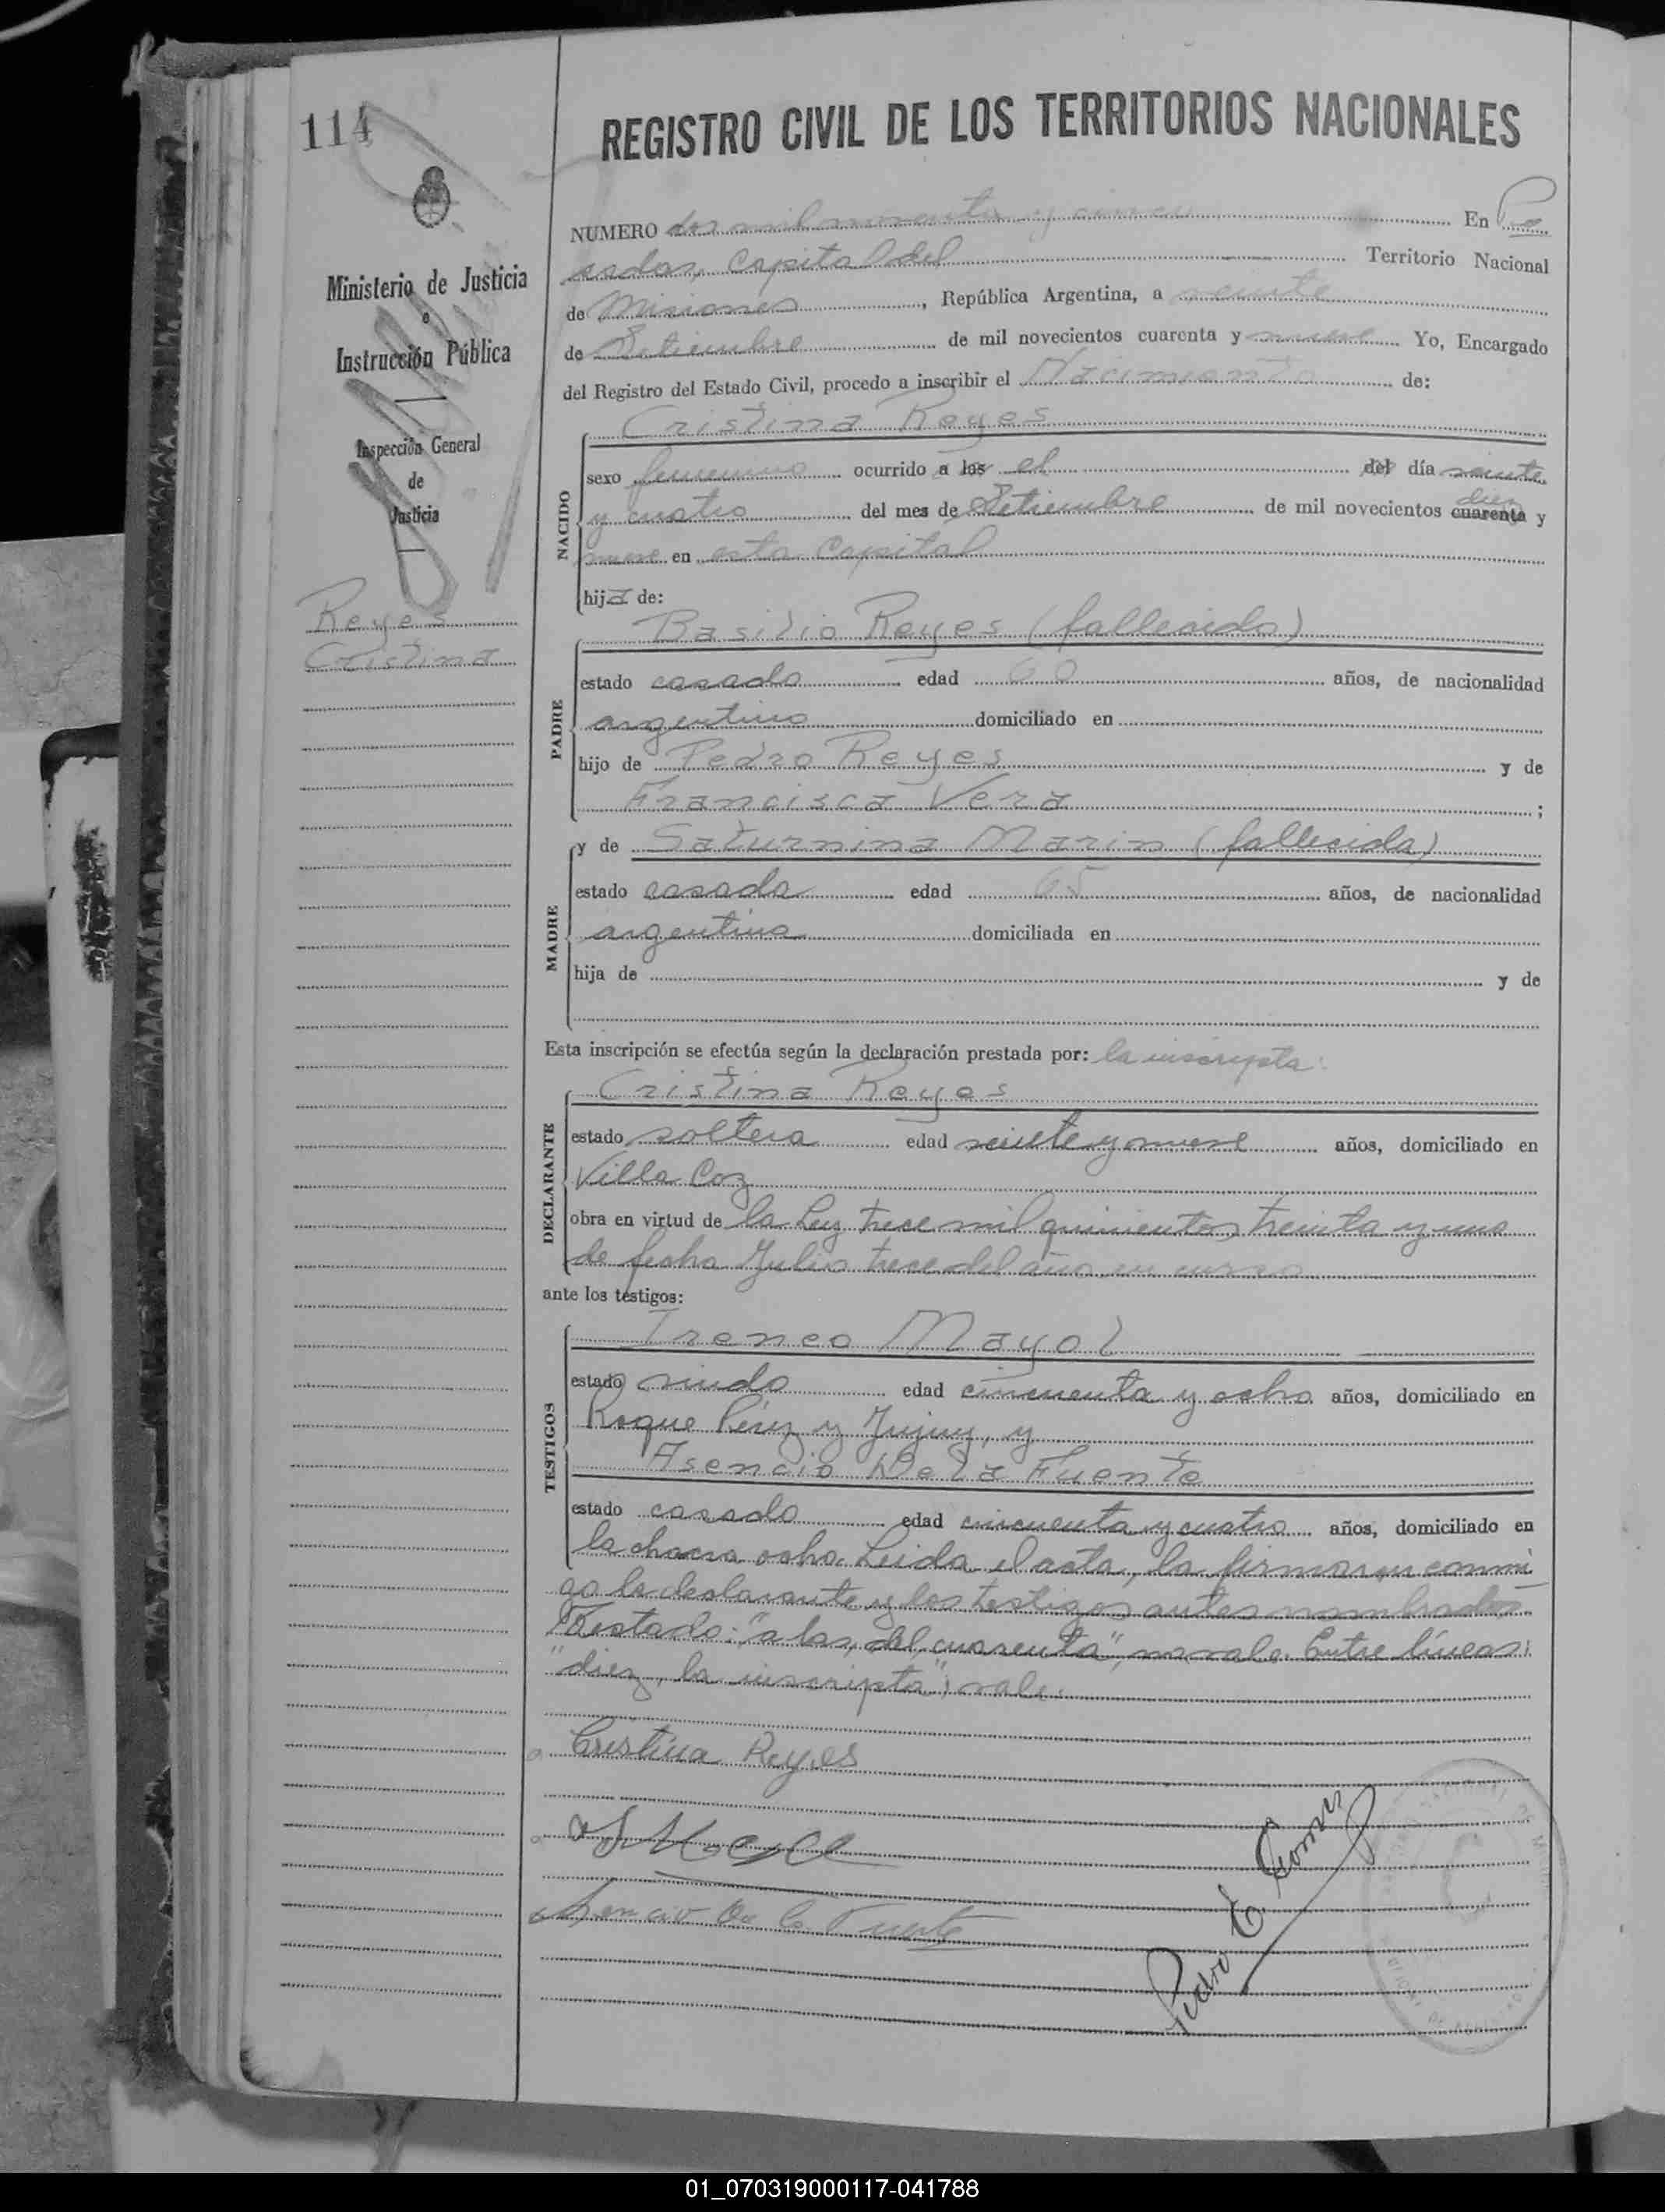 114
REGISTRO CIVIL DE LOS TERRITORIOS NACIONALES
Ministerio de Justicia
e
Instrucción Pública
Inspección General
de
Justicia
Reyes
Cristina
NUMERO dos mil noventa y cinco En Po
sadas, Capital del Territorio Nacional
de Misiones, República Argentina, a veinte
de Setiembre de mil novecientos cuarenta y nueve Yo, Encargado
del Registro del Estado Civil, procedo a inscribir el Nacimiento de:
Cristina Reyes
NACIDO
sexo femenino ocurrido a las el del día veinte
y cuatro del mes de Setiembre de mil novecientos cuarenta diez y
nueve en esta Capital
hija de:
PADRE
Basilio Reyes (fallecido)
estado casado edad 60 años, de nacionalidad
argentino domiciliado en
hijo de Pedro Reyes y de
Francisca Vera;
MADRE
y de Saturnina Marin (fallecida)
estado casada edad 65 años, de nacionalidad
argentina domiciliada en
hija de y de
Esta inscripción se efectúa según la declaración prestada por: la inscripta:
DECLARANTE
Cristina Reyes
estado soltera edad veinte y nueve años, domiciliado en
Villa Coz
obra en virtud de la Ley trece mil quinientos treinta y uno
de fecha Julio trece del año en curso
ante los testigos:
TESTIGOS
Ireneo Mayol
estado viudo edad cincuenta y ocho años, domiciliado en
Roque Pérez y Jujuy, y
Asencio De la Fuente
estado casado edad cincuenta y cuatro años, domiciliado en
la chacra ocho. Leida el acta, la firmaron conmi
go la declarante y los testigos antes nombrados.
Testado: "a las, del, cuarenta", no vale. Entre líneas:
"diez, la inscripta", vale.
Cristina Reyes
Asencio De la Fuente
Pedro E Gomez
01_070319000117-041788